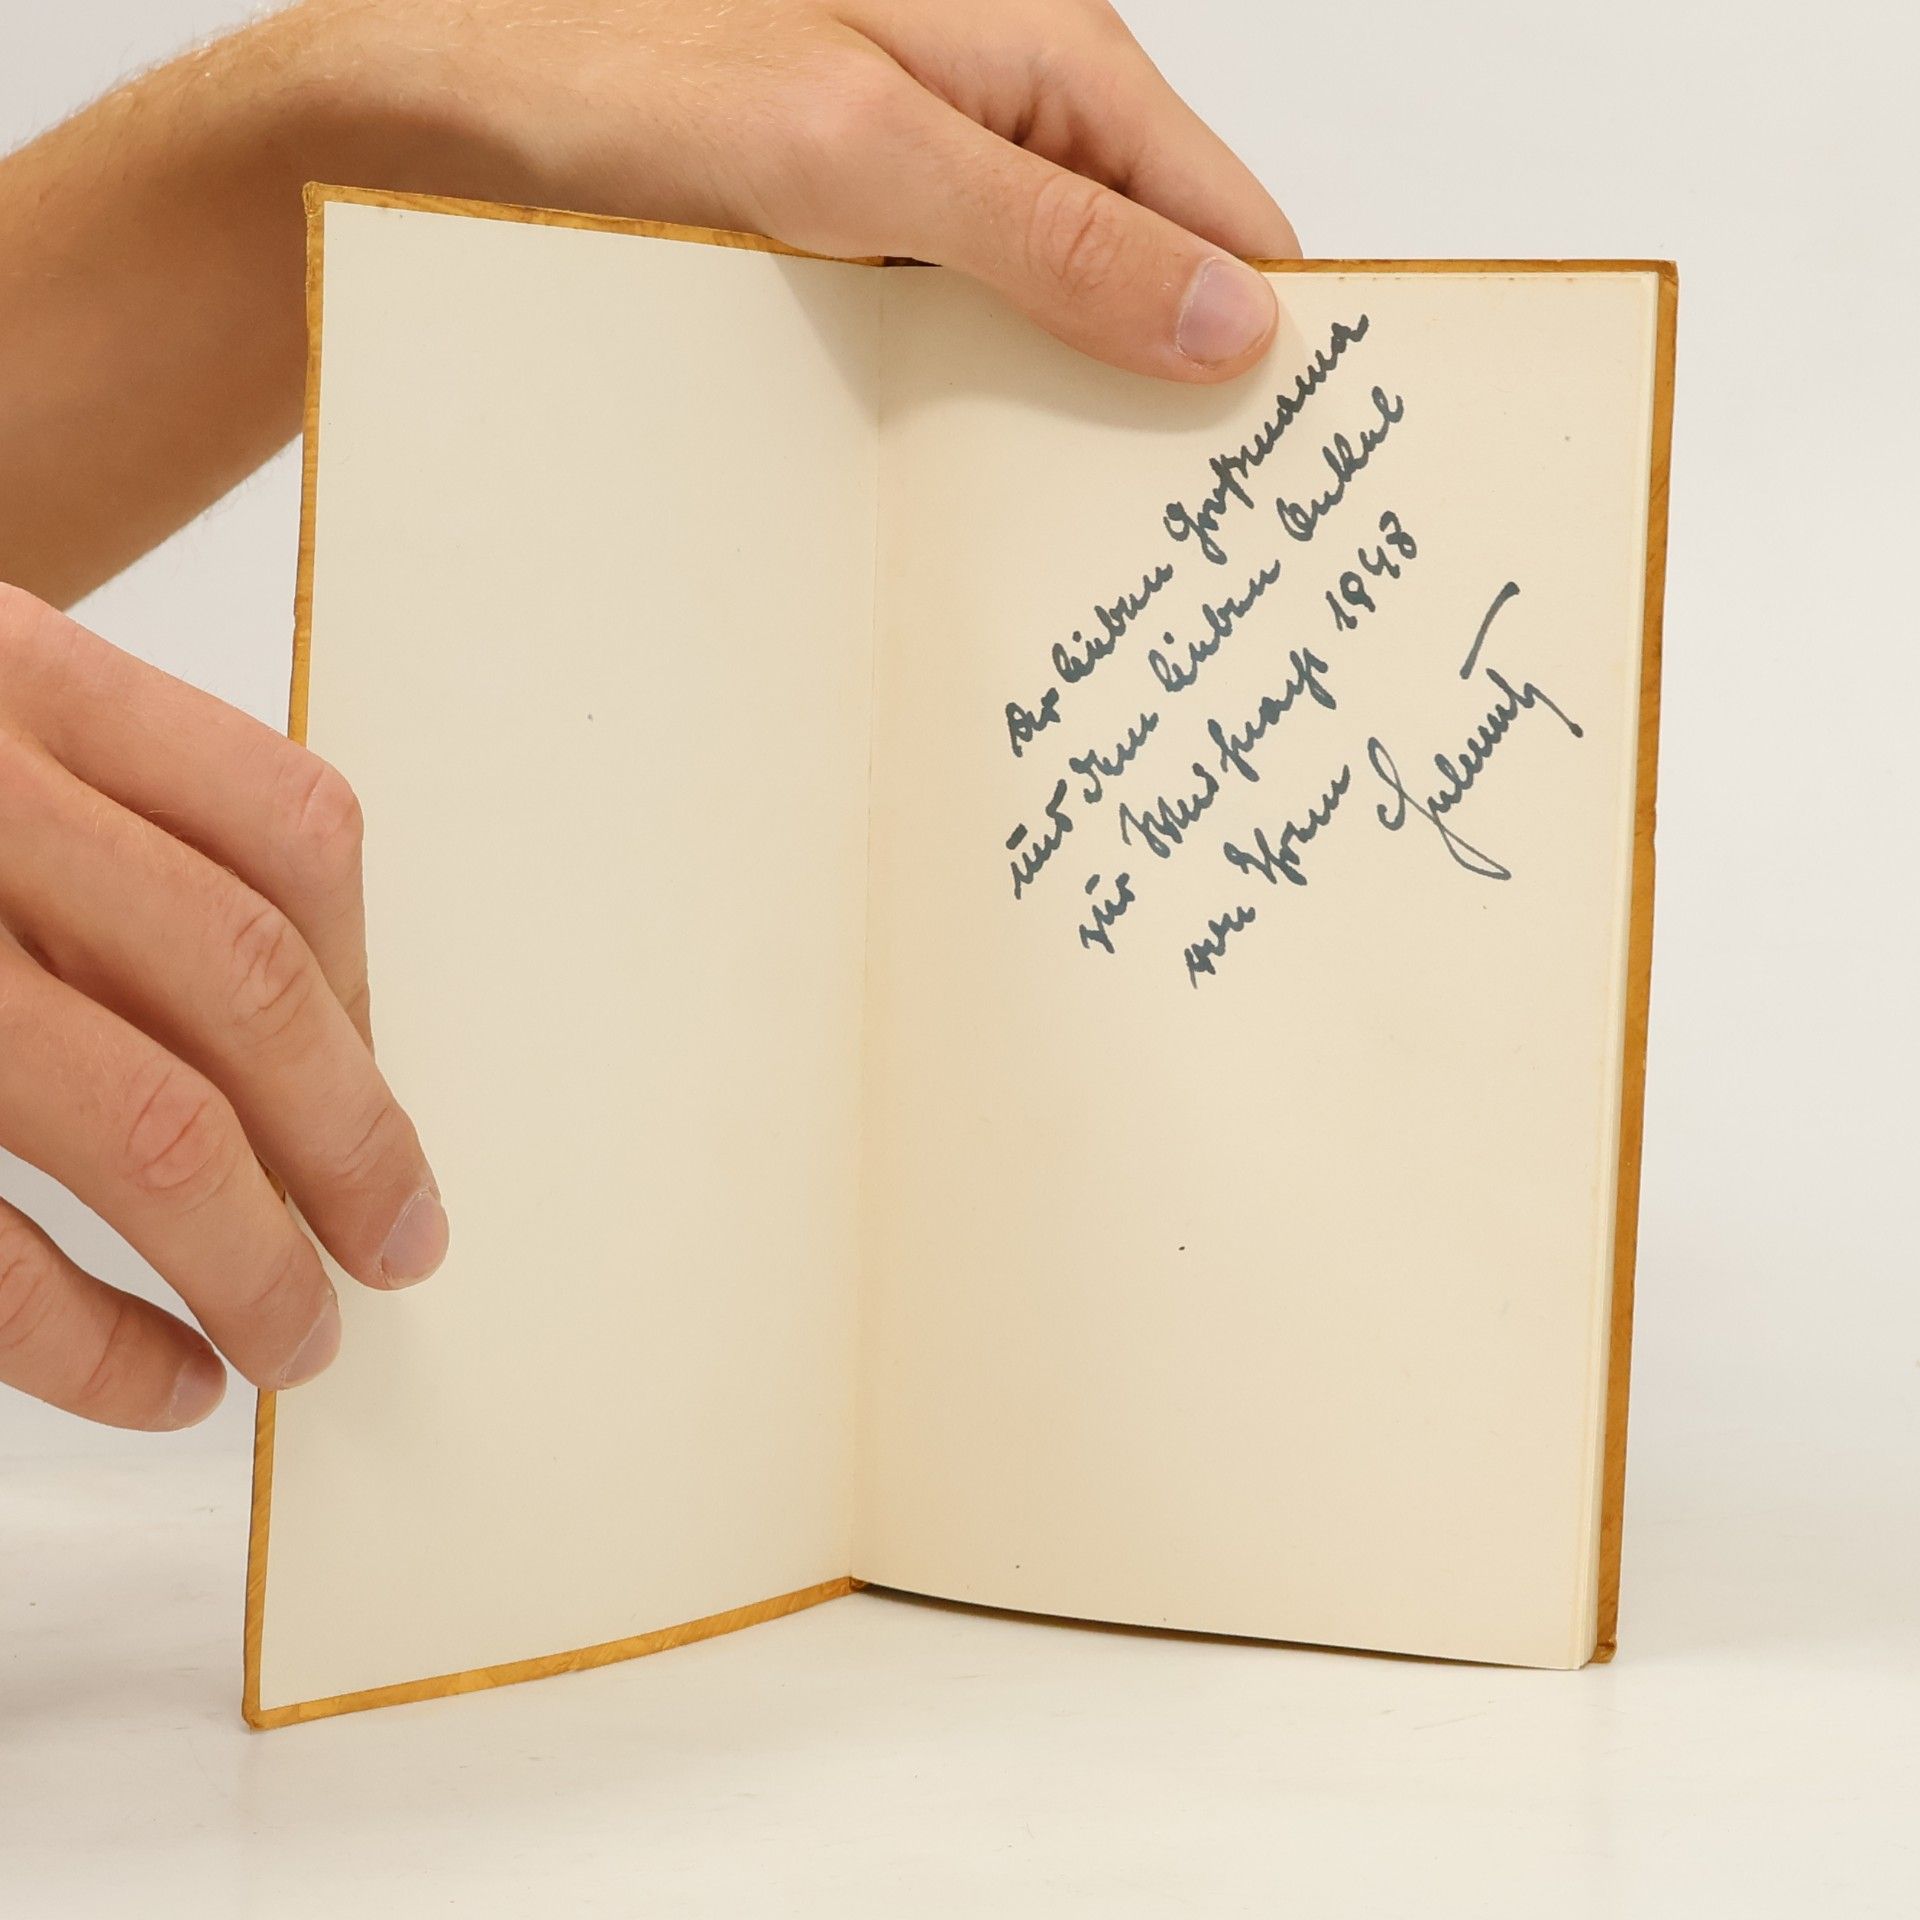 Der lieben Großmama
und dem lieben Onkel
zur Weihnacht 1948
von Ihrem